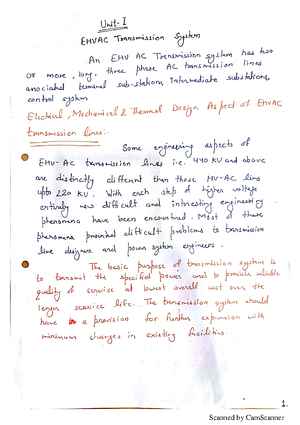 Unit-I
EHVAC Transmission System
An EHV AC Transmission system has two
or more, long, three phase AC transmission lines
associated terminal sub-stations, intermediate substations,
control system
Electrical, Mechanical & Thermal Design Aspect of EHVAC
transmission lines:-
Some engineering aspects of
EHV-AC transmission lines i.e. 440 KV and above
are distinctly different than those HV-AC lines
upto 220 KV. With each step of higher voltage
entirely new difficult and interesting engineering
phenomena have been encountred. Most of these
phenomena presented difficult problems to transmission
line designers and power system engineers.
The basic purpose of transmission system is
to transmit the specified power and to provide reliable
quality of service at lowest overall cost over the
longer service life. The transmission system should
have a provision for further expansion with
minimum changes in existing facilities.
1.
Scanned by CamScanner